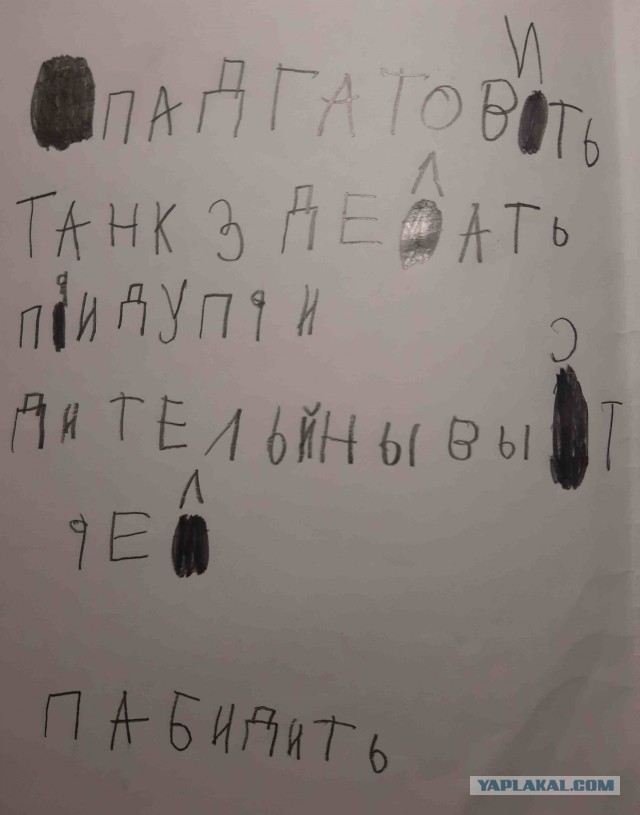 ПАДГАТОВИТЬ
ТАНК З ДЕЛАТЬ
ПРИДУПРИ
ДИТЕЛЬЙНЫ ВЫСТ
РЕЛ
ПАБИДИТЬ
YAPLAKAL.COM